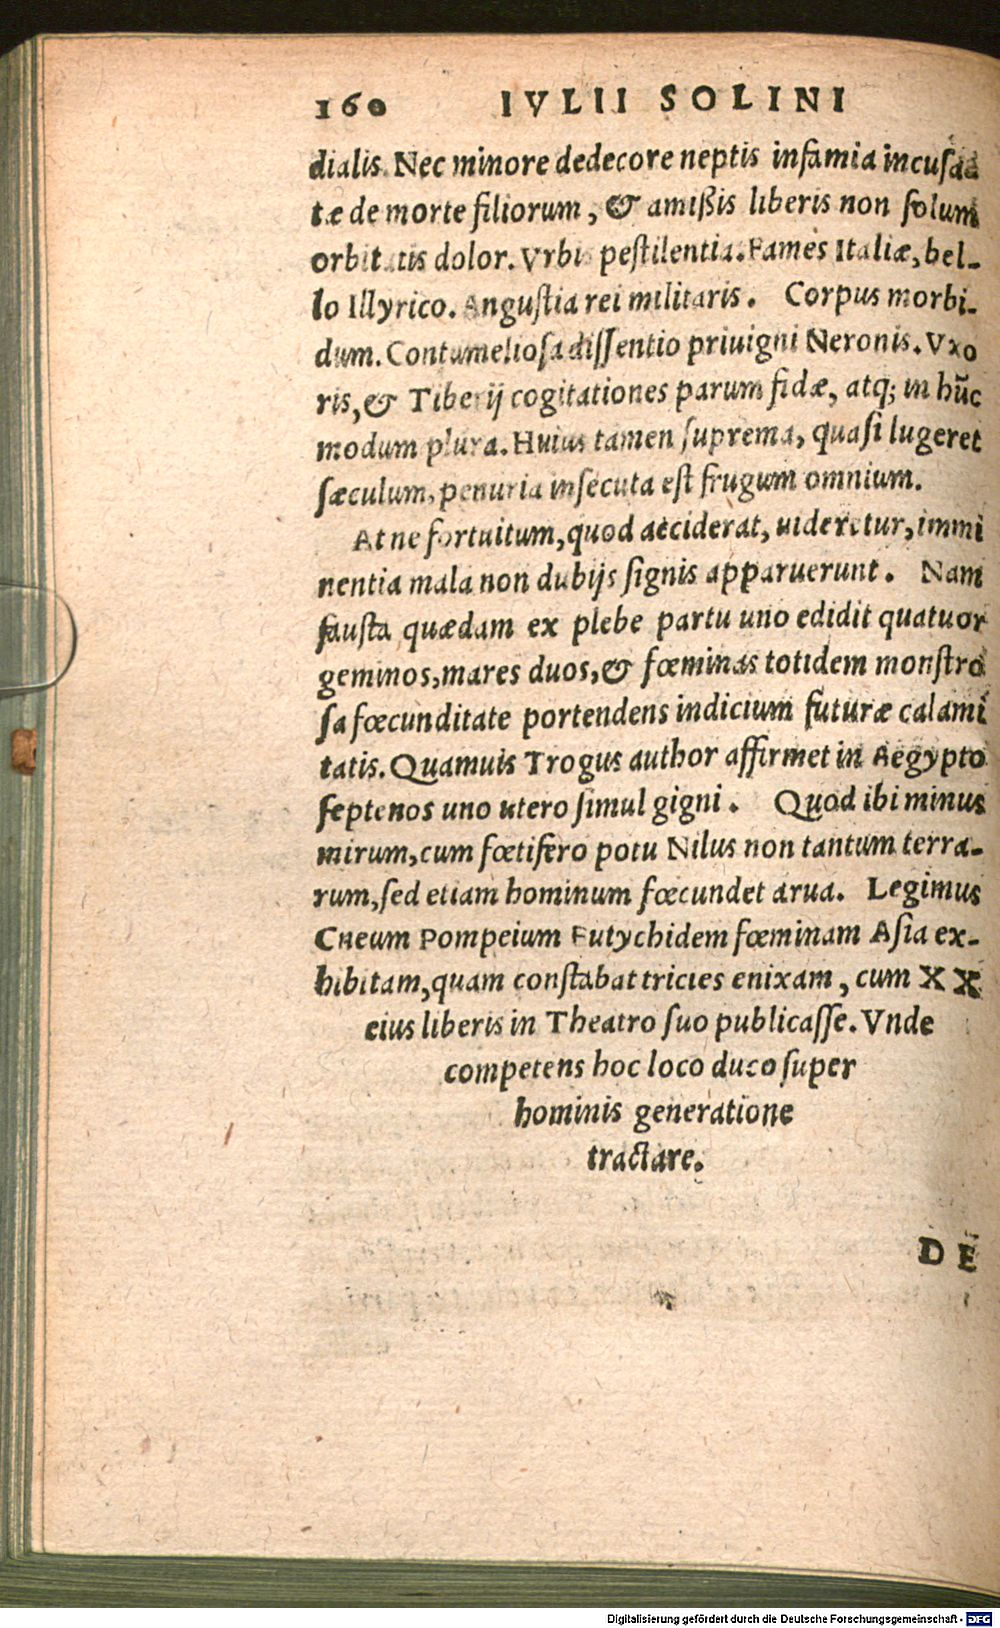 160 IVLII SOLINI
dialis. Nec minore dedecore neptis infamia incusa
tæ de morte filiorum, & amißis liberis non solum
orbitatis dolor. Vrbis pestilentia. Fames Italiæ, bel-
lo Illyrico. Angustia rei militaris. Corpus morbi-
dum. Contumeliosa dissentio priuigni Neronis. Vxo
ris, & Tiberij cogitationes parum fidæ, atq; in hũc
modum plura. Huius tamen suprema, quasi lugeret
sæculum, penuria insecuta est frugum omnium.
At ne fortuitum, quod acciderat, uideretur, immi
nentia mala non dubijs signis apparuerunt. Nam
fausta quædam ex plebe partu uno edidit quatuor
geminos, mares duos, & fœminas totidem monstro
sa fœcunditate portendens indicium futuræ calami
tatis. Quamuis Trogus author affirmet in Aegypto
septenos uno utero simul gigni. Quod ibi minus
mirum, cum fœtifero potu Nilus non tantum terra-
rum, sed etiam hominum fœcundet arua. Legimus
Cneum Pompeium Eutychidem fœminam Asia ex-
hibitam, quam constabat tricies enixam, cum XX
eius liberis in Theatro suo publicasse. Vnde
competens hoc loco duco super
hominis generatione
tractare.
DE
Digitalisierung gefördert durch die Deutsche Forschungsgemeinschaft - DFG